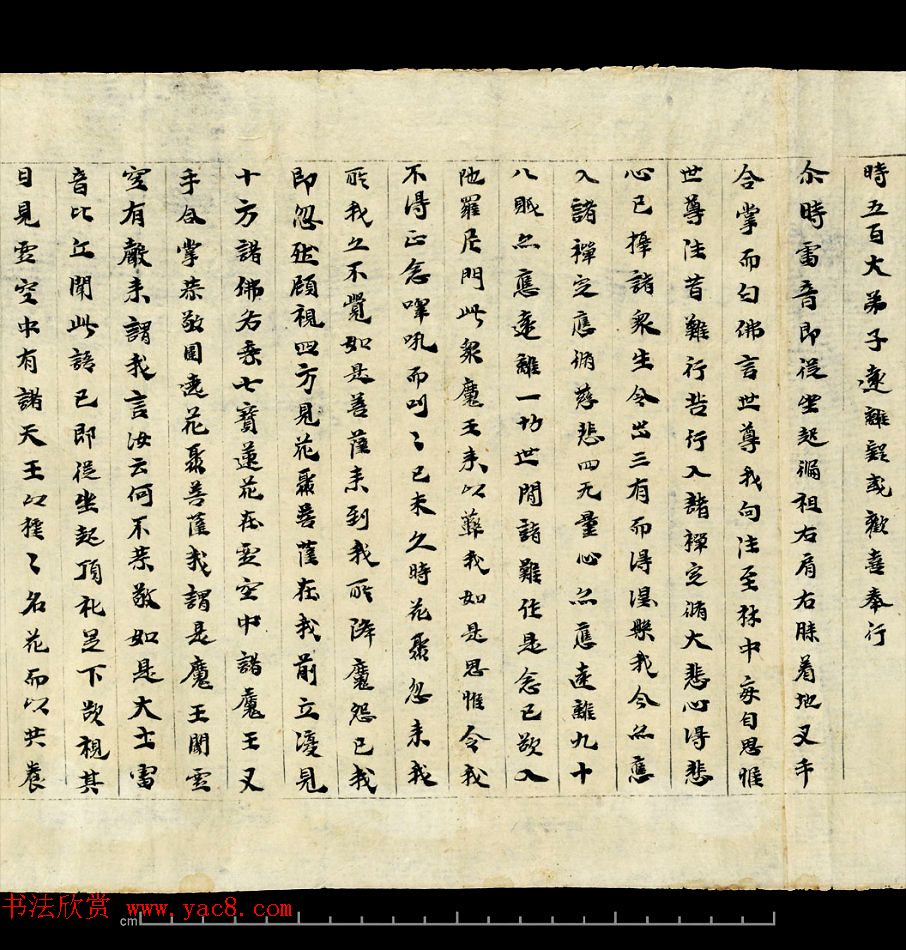 時五百大弟子遠離疑或歡喜奉行
尒時雷音即從坐起徧袒右肩右膝着地叉手
合掌而白佛言世尊我向法至林中哀自思惟
世尊往昔難行苦行入諸禪定脩大悲心得悲
心已擇諸衆生令出三有而得涅槃我今亦應
入諸禪定應脩慈悲四无量心亦應遠離九十
八賊亦應遠離一切世間諸難作是念已欲入
陁羅尼門此衆魔王来以蔽我如是思惟令我
不得正念嘷吼而叫〻已未久時花聚忽来我
所我久不覺如是善薩来到我所降魔怨已我
即忽然顧視四方見花聚菩薩在我前立復見
十方諸佛名乘七寶蓮花在虛空中諸魔王叉
手合掌恭敬圍遶花聚善薩我謂是魔王聞虛
空有聲来謂我言汝云何不恭敬如是大士雷
音比丘聞此語已即從坐起頂礼足下欲視其
目見虛空中有諸天王以種〻名花而以共養
书法欣赏 www.yac8.com
cm